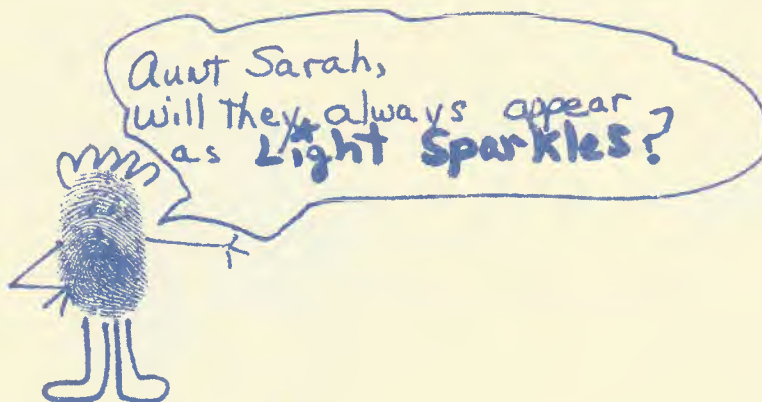 Aunt Sarah,
will they always appear
as Light Sparkles?